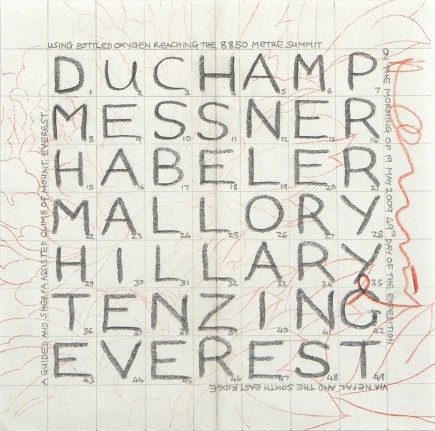 A GUIDED AND SHERPA ASSISTED CLIMB OF MOUNT EVEREST
USING BOTTLED OXYGEN REACHING THE 8850 METRE SUMMIT
ON THE MORNING OF 19 MAY 2009 49TH DAY OF THE EXPEDITION
VIA NEPAL AND THE SOUTH EAST RIDGE
DUCHAMP
1 2 3 4 5 6 7
MESSNER
8 9 10 11 12 13 14
HABELER
15 16 17 18 19 20 21
MALLORY
22 23 24 25 26 27 28
HILLARY
29 30 31 32 33 34 35
TENZING
36 37 38 39 40 41 42
EVEREST
43 44 45 46 47 48 49